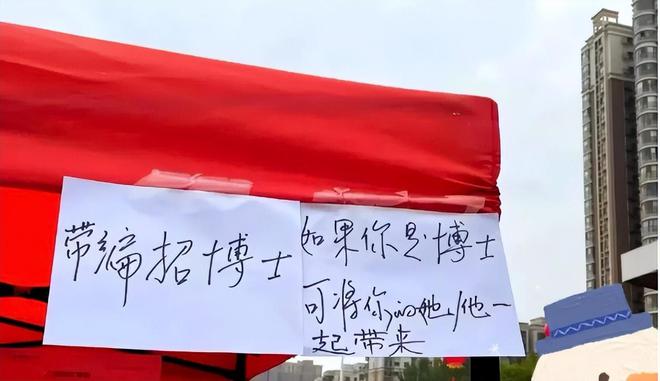 带编招博士
如果你是博士
可将你的她/他一
起带来